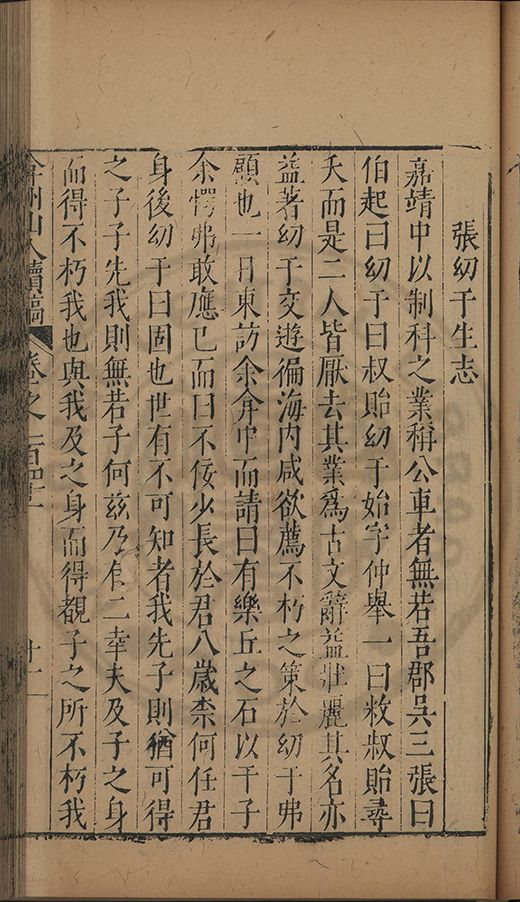 張幼于生志
嘉靖中以制科之業稱公車者無若吾郡吳三張曰
伯起曰幼于曰叔貽幼于始字仲舉一曰敉叔貽尋
夭而是二人皆厭去其業爲古文辭益壯麗其名亦
益著幼于交遊徧海内咸欲薦不朽之策於幼于弗
顧也一日東訪余弇中而請曰有樂丘之石以干子
余愕弗敢應已而曰不佞少長於君八歲柰何任君
身後幼于曰固也世有不可知者我先子則猶可得
之子子先我則無若子何茲乃有二幸夫及子之身
而得不朽我也與我及之身而得覩子之所不朽我
弇州山人續稿 卷之一百